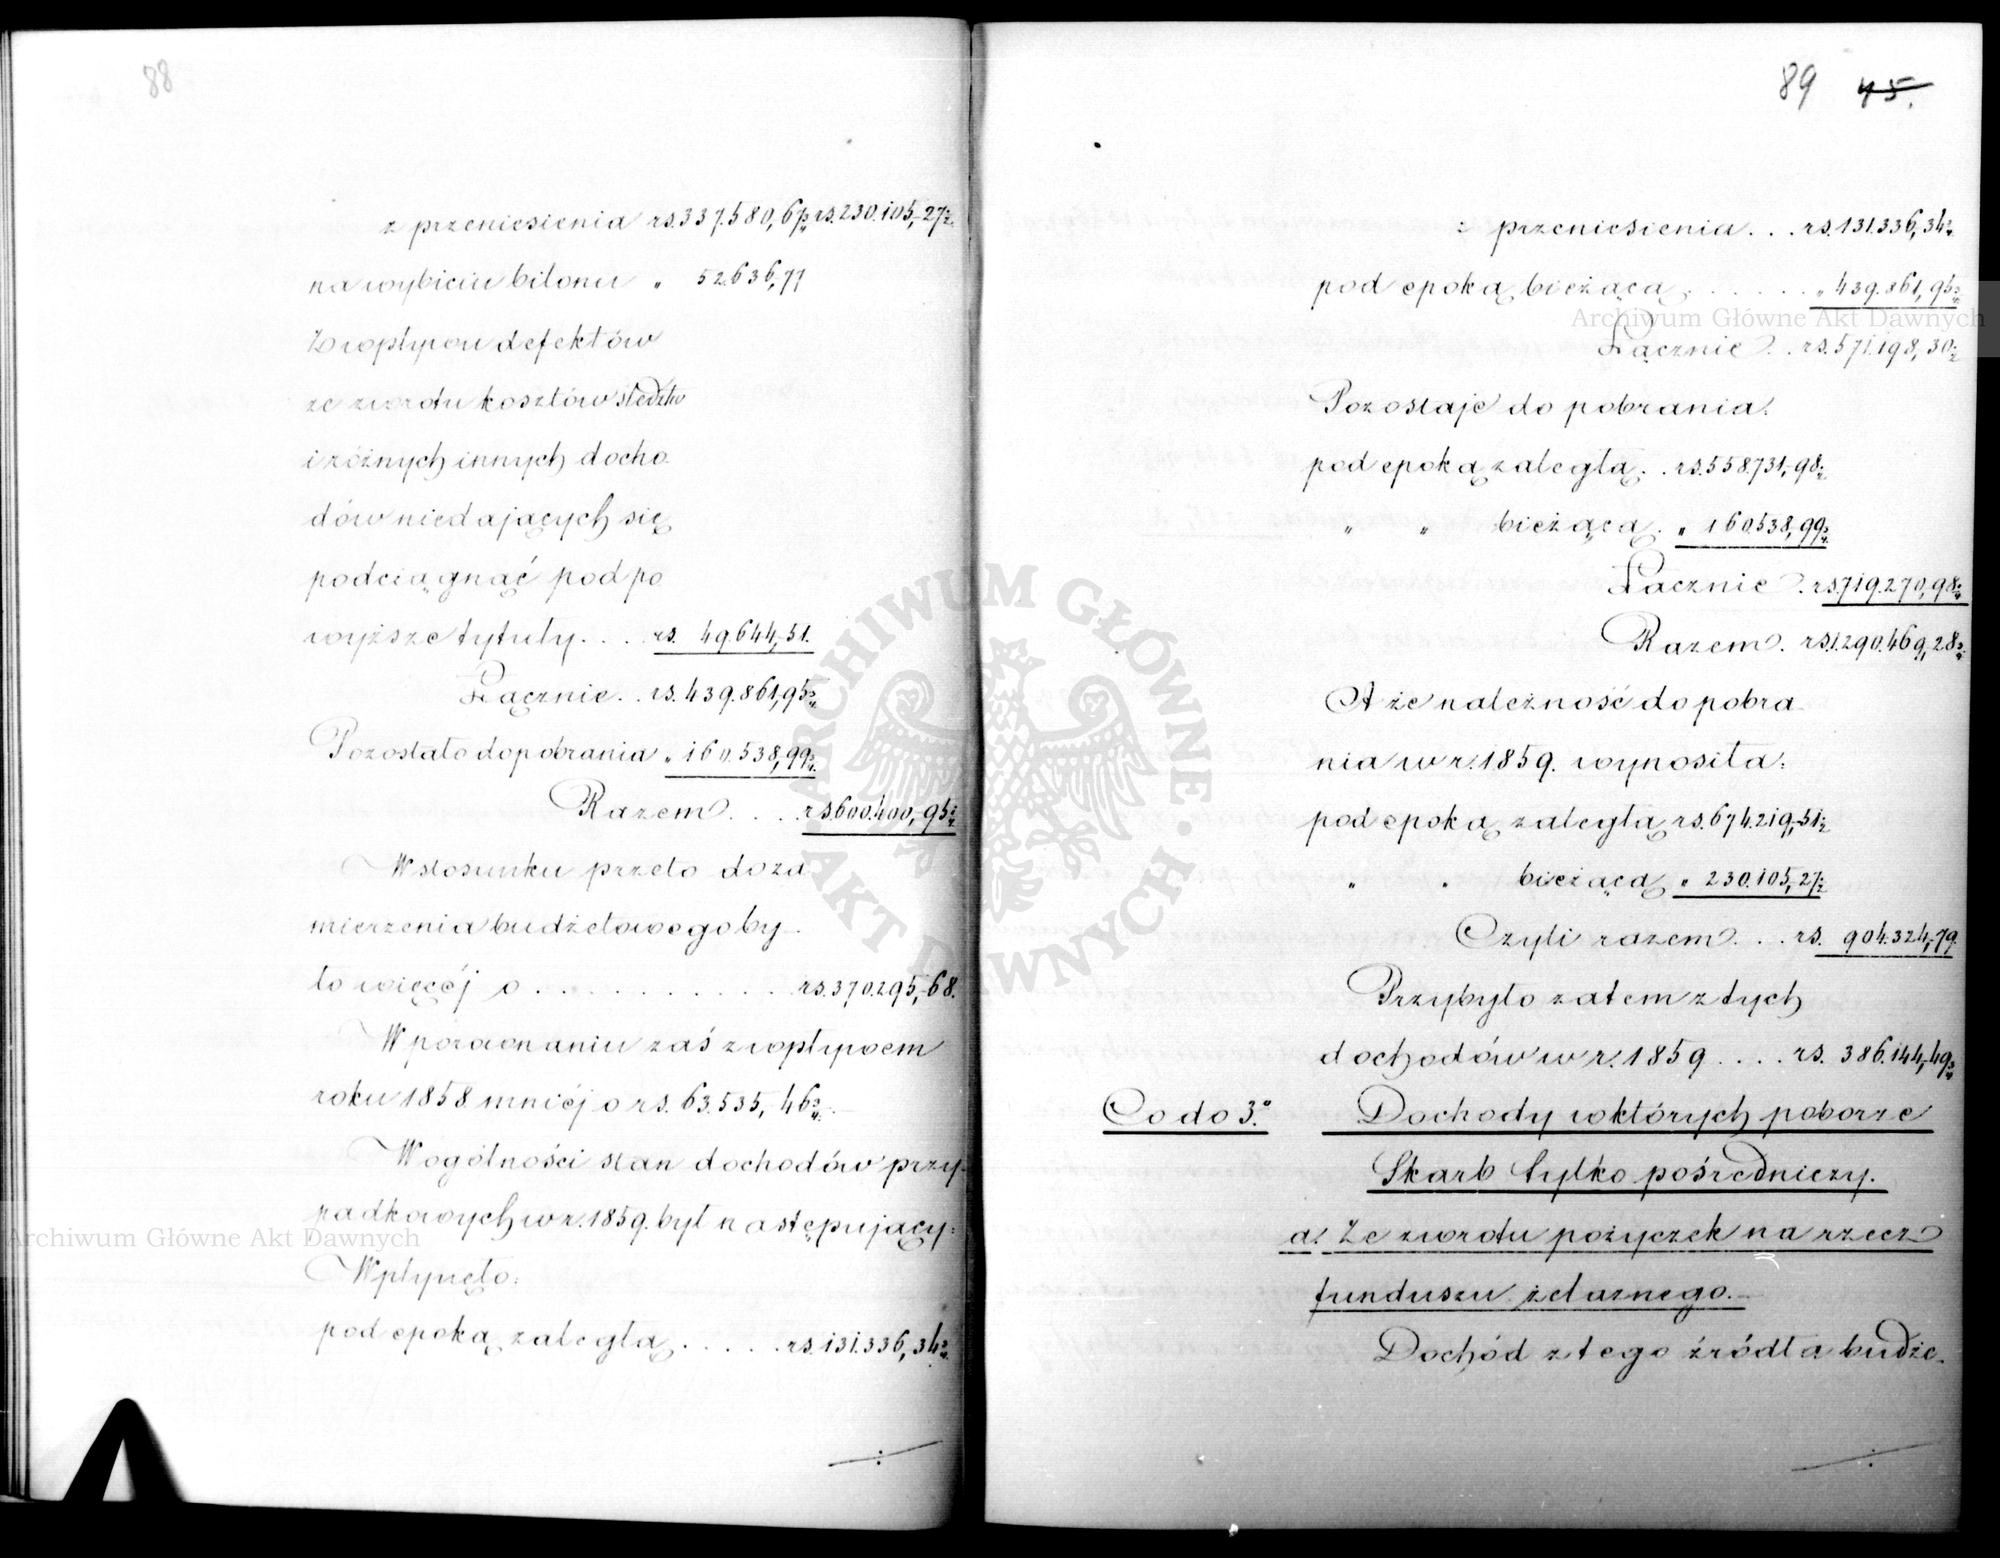 88
z przeniesienia rs. 337.580,67¾ rs. 230.105,27½
na wybiciu bilonu „ 52.636,77
Z wpływu defektów
ze zwrotu kosztów śledztw
i różnych innych docho
dów niedających się
podciągnąć pod po
wyższe tytuły . . . rs. 49.644,51.
Łącznie . . rs. 439.861,95¾
Pozostało do pobrania „ 160.538,99¾
Razem . . . . rs. 600.400,95½
W stosunku przeto do za
mierzenia budżetowego by
ło więcéj o . . . . . . . . . . rs. 370.295,68.
W porównaniu zaś z wpływem
roku 1858 mniéj o rs. 63.535,46¾.
W ogólności stan dochodów przy
padkowych w r. 1859. był następujący:
Wpłynęło:
pod epoką zaległą . . . . . rs. 131.336,34¾
89 45.
z przeniesienia . . . rs. 131.336,34¾
pod epoką bieżącą . . . . . . „ 439.861,95¾
Łącznie . . rs. 571.198,30½
Pozostaje do pobrania:
pod epoką zaległą . . rs. 558.731,98½
„ „ bieżącą . „ 160.538,99¾
Łącznie . rs. 719.270,98¼
Razem . rs. 1.290.469,28¾
A że należność do pobra
nia w r. 1859. wynosiła:
pod epoką zaległą rs. 674.219,51½
„ „ bieżącą „ 230.105,27½
Czyli razem . . . rs. 904.324,79.
Przybyło zatem z tych
dochodów w r. 1859 . . . . rs. 386.144,49¾
Co do 3.° Dochody w których poborze
Skarb tylko pośredniczy.
a/ Ze zwrotu pożyczek na rzecz
funduszu żelaznego.
Dochód z tego źródła budże-
Archiwum Główne Akt Dawnych
Archiwum Główne Akt Dawnych
ARCHIWUM GŁÓWNE · AKT DAWNYCH ·